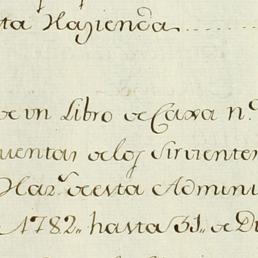 ta Hazienda
de vn Libro de Caxa n.º
uentas de los Sirvientes
Har.s de esta Adminis
1782,, hasta 31,, de D